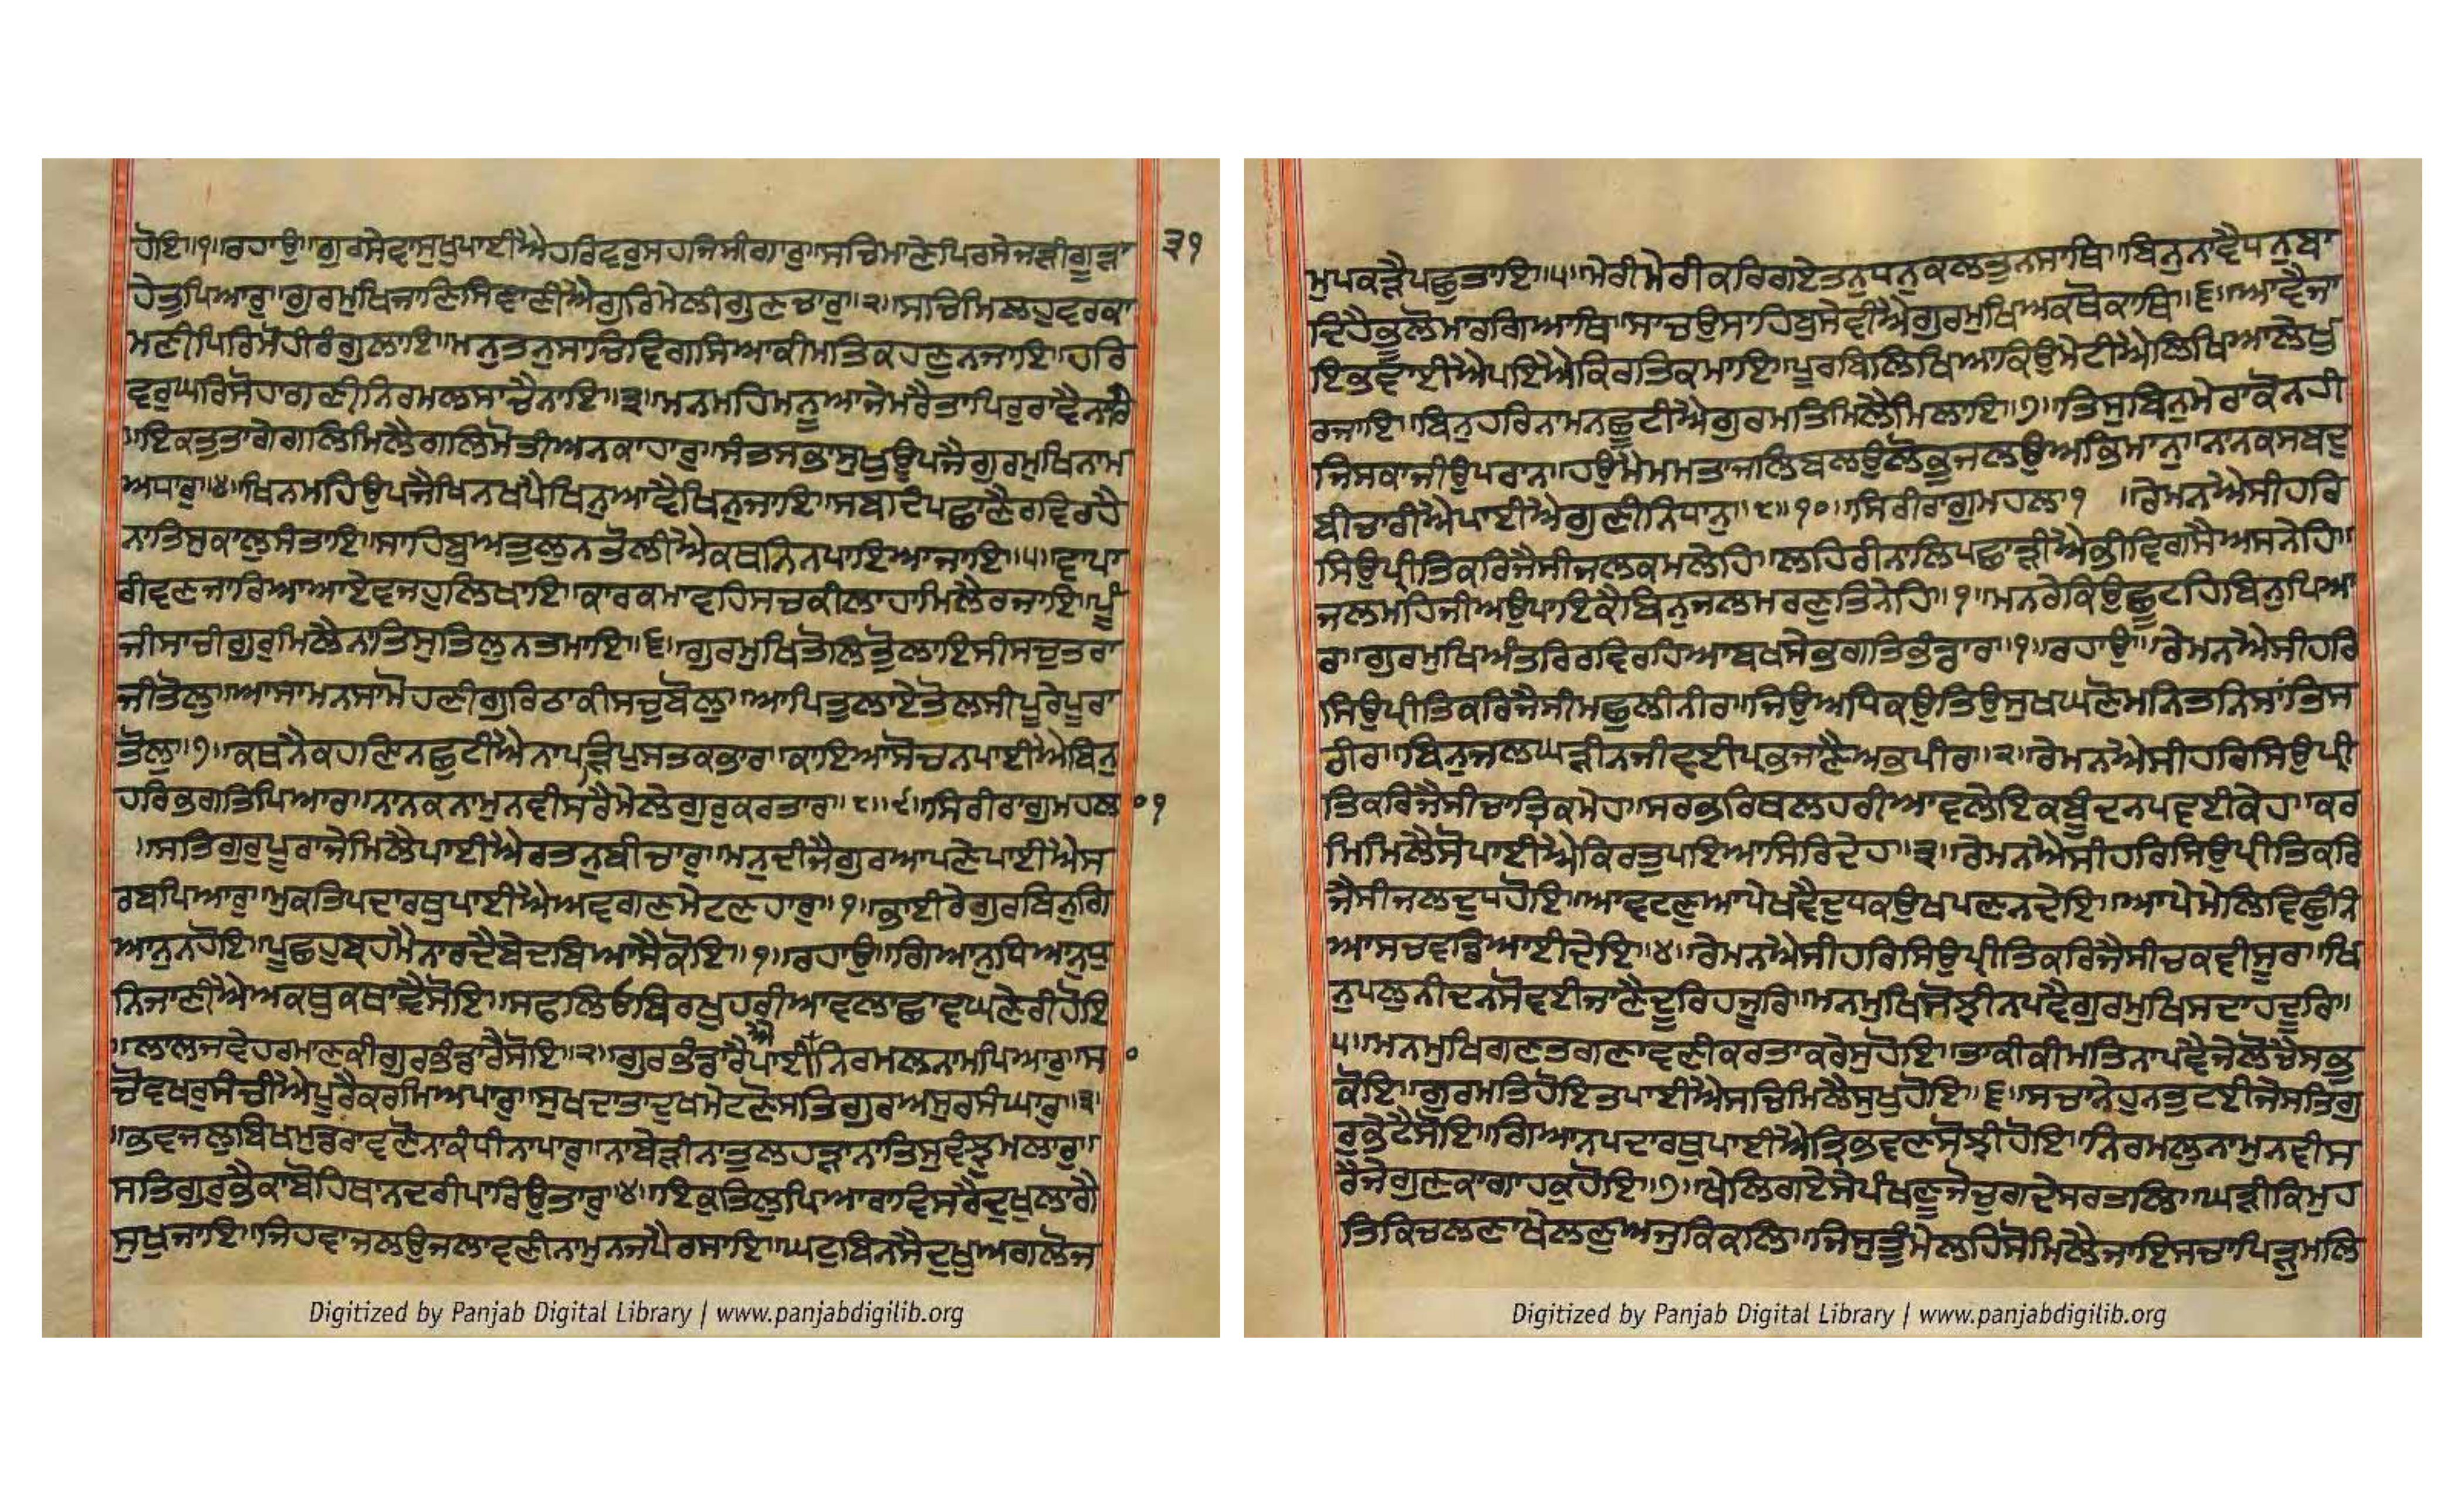 ਹੋਇ॥੧॥ਰਹਾਉ॥ਗੁਰਸੇਵਾਸੁਖੁਪਾਈਐਹਰਿਵਰੁਸਹਜਿਸੀਗਾਰੁ॥ਸਚਿਮਾਣੇਪਿਰਸੇਜੜੀਗੂੜਾ
੩੧
ਹੇਤੁਪਿਆਰੁ॥ਗੁਰਮੁਖਿਜਾਣਿਸਿਞਾਣੀਐਗੁਰਿਮੇਲੀਗੁਣਚਾਰੁ॥੨॥ਸਚਿਮਿਲਹੁਵਰਕਾ
ਮਣੀਪਿਰਿਮੋਹੀਰੰਗੁਲਾਇ॥ਮਨੁਤਨੁਸਾਚਿਵਿਗਸਿਆਕੀਮਤਿਕਹਣੁਨਜਾਇ॥ਹਰਿ
ਵਰੁਘਰਿਸੋਹਾਗਣੀਨਿਰਮਲਸਾਚੈਨਾਇ॥੩॥ਮਨਮਹਿਮਨੂਆਜੇਮਰੈਤਾਪਿਰੁਰਾਵੈਨਾਰਿ
॥ਇਕਤੁਤਾਗੇਗਲਿਮਿਲੈਗਲਿਮੋਤੀਅਨਕਾਹਾਰੁ॥ਸੰਤਸਭਾਸੁਖੁਊਪਜੈਗੁਰਮੁਖਿਨਾਮ
ਅਧਾਰੁ॥੪॥ਖਿਨਮਹਿਉਪਜੈਖਿਨਖਪੈਖਿਨੁਆਵੈਖਿਨੁਜਾਇ॥ਸਬਦਿਪਛਾਣੈਰਵਿਰਹੈ
ਨਾਤਿਸੁਕਾਲੁਸੰਤਾਇ॥ਸਾਹਿਬੁਅਤੁਲੁਨਤੋਲੀਐਕਥਨਿਨਪਾਇਆਜਾਇ॥੫॥ਵਾਪਾ
ਰੀਵਣਜਾਰਿਆਆਏਵਜਹੁਲਿਖਾਇ॥ਕਾਰਕਮਾਵਹਿਸਚਕੀਲਾਹਾਮਿਲੈਰਜਾਇ॥ਪੂੰ
ਜੀਸਾਚੀਗੁਰੁਮਿਲੈਨਾਤਿਸੁਤਿਲੁਨਤਮਾਇ॥੬॥ਗੁਰਮੁਖਿਤੋਲਿਤੋੁਲਾਇਸੀਸਚੁਤਰਾ
ਜੀਤੋਲੁ॥ਆਸਾਮਨਸਾਮੋਹਣੀਗੁਰਿਠਾਕੀਸਚੁਬੋਲੁ॥ਆਪਿਤੁਲਾਏਤੋਲਸੀਪੂਰੇਪੂਰਾ
ਤੋਲੁ॥੭॥ਕਥਨੈਕਹਣਿਨਛੁਟੀਐਨਾਪੜਿਪੁਸਤਕਭਾਰ॥ਕਾਇਆਸੋਚਨਪਾਈਐਬਿਨੁ
ਹਰਿਭਗਤਿਪਿਆਰ॥ਨਾਨਕਨਾਮੁਨਵੀਸਰੈਮੇਲੇਗੁਰੁਕਰਤਾਰ॥੮॥੯॥ਸਿਰੀਰਾਗੁਮਹਲਾ੦੧
॥ਸਤਿਗੁਰੁਪੂਰਾਜੇਮਿਲੈਪਾਈਐਰਤਨੁਬੀਚਾਰੁ॥ਮਨੁਦੀਜੈਗੁਰਆਪਣੇਪਾਈਐਸ
ਰਬਪਿਆਰੁ॥ਮੁਕਤਿਪਦਾਰਥੁਪਾਈਐਅਵਗਣਮੇਟਣਹਾਰੁ॥੧॥ਭਾਈਰੇਗੁਰਬਿਨੁਗਿ
ਆਨੁਨਹੋਇ॥ਪੂਛਹੁਬ੍ਰਹਮੈਨਾਰਦੈਬੇਦਬਿਆਸੈਕੋਇ॥੧॥ਰਹਾਉ॥ਗਿਆਨੁਧਿਆਨੁਧੁ
ਨਿਜਾਣੀਐਅਕਥੁਕਥਾਵੈਸੋਇ॥ਸਫਲਿਓਬਿਰਖੁਹਰੀਆਵਲਾਛਾਵਘਣੇਰੀਹੋਇ
॥ਲਾਲਜਵੇਹਰਮਾਣਕੀਗੁਰਭੰਡਾਰੈਸੋਇ॥੨॥ਗੁਰਭੰਡਾਰੈਪਾਈਨਿਰਮਲਨਾਮਪਿਆਰੁ॥ਸ੦
ਚੋਵਖਰੁਸੰਚੀਐਪੂਰੈਕਰਮਿਅਪਾਰੁ॥ਸੁਖਦਾਤਾਦੁਖਮੇਟਣੋਸਤਿਗੁਰਅਸੁਰਸੰਘਾਰੁ॥੩
॥ਭਵਜਲੁਬਿਖਮੁਡਰਾਵਣੋਨਾਕੰਧੀਨਾਪਾਰੁ॥ਨਾਬੇੜੀਨਾਤੁਲਹੜਾਨਾਤਿਸੁਵੰਝੁਮਲਾਰੁ॥
ਸਤਿਗੁਰਭੈਕਾਬੋਹਿਥਾਨਦਰੀਪਾਰਿਉਤਾਰੁ॥੪॥ਇਕੁਤਿਲੁਪਿਆਰਾਵਿਸਰੈਦੁਖੁਲਾਗੈ
ਸੁਖੁਜਾਇ॥ਜਿਹਵਾਜਲਉਜਲਾਵਣੀਨਾਮੁਨਜਪੈਰਸਾਇ॥ਘਟੁਬਿਨਸੈਦੁਖੁਅਗਲੋਜ
Digitized by Panjab Digital Library | www.panjabdigilib.org
ਮੁਪਕੜੈਪਛੁਤਾਇ॥੫॥ਮੇਰੀਮੇਰੀਕਰਿਗਏਤਨੁਧਨੁਕਲਤੁਨਸਾਥਿ॥ਬਿਨੁਨਾਵੈਧਨੁਬਾ
ਦਿਹੈਭੂਲੋਮਾਰਗਿਆਥਿ॥ਸਾਚਉਸਾਹਿਬੁਸੇਵੀਐਗੁਰਮੁਖਿਅਕਥੋਕਾਥਿ॥੬॥ਆਵੈਜਾ
ਇਭਵਾਈਐਪਇਐਕਿਰਤਿਕਮਾਇ॥ਪੂਰਬਿਲਿਖਿਆਕਿਉਮੇਟੀਐਲਿਖਿਆਲੇਖੁ
ਰਜਾਇ॥ਬਿਨੁਹਰਿਨਾਮਨਛੁਟੀਐਗੁਰਮਤਿਮਿਲੈਮਿਲਾਇ॥੭॥ਤਿਸੁਬਿਨੁਮੇਰਾਕੋਨਹੀ
ਜਿਸਕਾਜੀਉਪਰਾਨ॥ਹਉਮੈਮਮਤਾਜਲਿਬਲਉਲੋਭੁਜਲਉਅਭਿਮਾਨੁ॥ਨਾਨਕਸਬਦੁ
ਬੀਚਾਰੀਐਪਾਈਐਗੁਣੀਨਿਧਾਨੁ॥੮॥੧੦॥ਸਿਰੀਰਾਗੁਮਹਲਾ੧ ॥ਰੇਮਨਐਸੀਹਰਿ
ਸਿਉਪ੍ਰੀਤਿਕਰਿਜੈਸੀਜਲਕਮਲੇਹਿ॥ਲਹਿਰੀਨਾਲਿਪਛਾੜੀਐਭੀਵਿਗਸੈਅਸਨੇਹਿ॥
ਜਲਮਹਿਜੀਅਉਪਾਇਕੈਬਿਨੁਜਲਮਰਣੁਤਿਨੇਹਿ॥੧॥ਮਨਰੇਕਿਉਛੂਟਹਿਬਿਨੁਪਿਆ
ਰ॥ਗੁਰਮੁਖਿਅੰਤਰਿਰਵਿਰਹਿਆਬਖਸੇਭਗਤਿਭੰਡਾਰ॥੧॥ਰਹਾਉ॥ਰੇਮਨਐਸੀਹਰਿ
ਸਿਉਪ੍ਰੀਤਿਕਰਿਜੈਸੀਮਛੁਲੀਨੀਰ॥ਜਿਉਅਧਿਕਉਤਿਉਸੁਖਘਣੋਮਨਿਤਨਿਸਾਂਤਿਸ
ਰੀਰ॥ਬਿਨੁਜਲਘੜੀਨਜੀਵਈਪ੍ਰਭਜਾਣੈਅਭਪੀਰ॥੨॥ਰੇਮਨਐਸੀਹਰਿਸਿਉਪ੍ਰੀ
ਤਿਕਰਿਜੈਸੀਚਾਤ੍ਰਿਕਮੇਹ॥ਸਰਭਰਿਥਲਹਰੀਆਵਲੇਇਕਬੂੰਦਨਪਵਈਕੇਹ॥ਕਰ
ਮਿਮਿਲੈਸੋਪਾਈਐਕਿਰਤੁਪਇਆਸਿਰਿਦੇਹ॥੩॥ਰੇਮਨਐਸੀਹਰਿਸਿਉਪ੍ਰੀਤਿਕਰਿ
ਜੈਸੀਜਲਦੁਧਹੋਇ॥ਆਵਟਣੁਆਪੇਖਵੈਦੁਧਕਉਖਪਣਨਦੇਇ॥ਆਪੇਮੇਲਿਵਿਛੁੰਨਿ
ਆਸਚਵਡਿਆਈਦੇਇ॥੪॥ਰੇਮਨਐਸੀਹਰਿਸਿਉਪ੍ਰੀਤਿਕਰਿਜੈਸੀਚਕਵੀਸੂਰ॥ਖਿ
ਨੁਪਲੁਨੀਦਨਸੋਵਈਜਾਣੈਦੂਰਿਹਜੂਰਿ॥ਮਨਮੁਖਿਸੋਝੀਨਪਵੈਗੁਰਮੁਖਿਸਦਾਹਦੂਰਿ॥
੫॥ਮਨਮੁਖਿਗਣਤਗਣਾਵਣੀਕਰਤਾਕਰੇਸੁਹੋਇ॥ਤਾਕੀਕੀਮਤਿਨਾਪਵੈਜੇਲੋਚੈਸਭੁ
ਕੋਇ॥ਗੁਰਮਤਿਹੋਇਤਪਾਈਐਸਚਿਮਿਲੈਸੁਖੁਹੋਇ॥੬॥ਸਚਾਨੇਹੁਨਤੁਟਈਜੇਸਤਿਗੁ
ਰੁਭੇਟੈਸੋਇ॥ਗਿਆਨਪਦਾਰਥੁਪਾਈਐਤ੍ਰਿਭਵਣਸੋਝੀਹੋਇ॥ਨਿਰਮਲੁਨਾਮੁਨਵੀਸ
ਰੈਜੇਗੁਣਕਾਗਾਹਕੁਹੋਇ॥੭॥ਖੇਲਿਗਏਸੇਪੰਖਣੂਜੋਚੁਗਦੇਸਰਤਲਿ॥ਘੜੀਕਿਮੁਹ
ਤਿਕਿਚਲਣਾਖੇਲਣੁਅਜੁਕਿਕਲਿ॥ਜਿਸੁਤੂੰਮੇਲਹਿਸੋਮਿਲੈਜਾਇਸਚਾਪਿੜੁਮਲਿ
Digitized by Panjab Digital Library | www.panjabdigilib.org